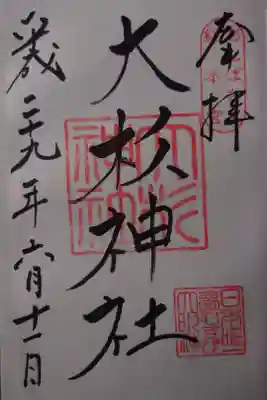 奉拝
大杉神社
平成二十九年六月十一日